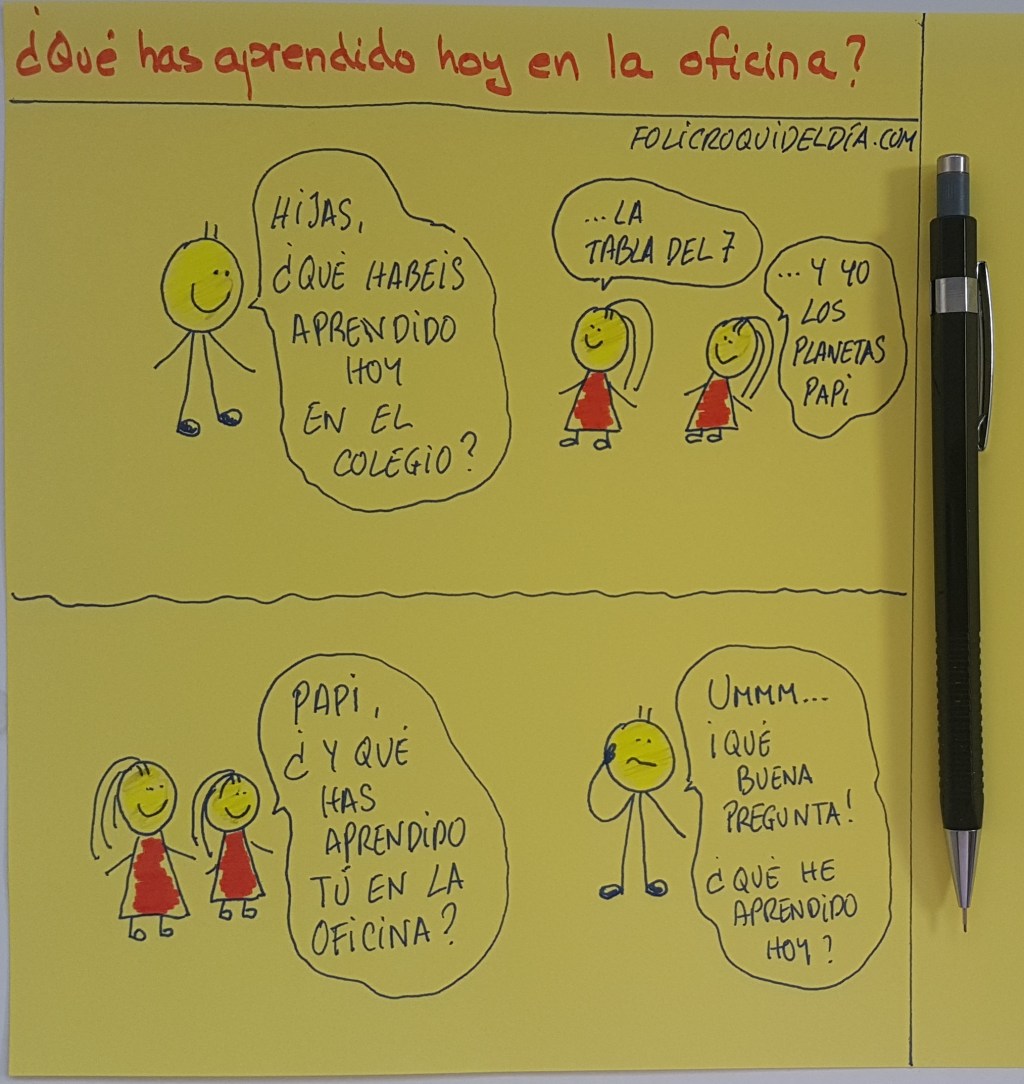 ¿Qué has aprendido hoy en la oficina?
FOLICROQUIDELDÍA.COM
HIJAS,
¿QUÉ HABEIS
APRENDIDO
HOY
EN EL
COLEGIO?
...LA
TABLA DEL 7
...Y YO
LOS
PLANETAS
PAPI
PAPI,
¿Y QUÉ
HAS
APRENDIDO
TÚ EN LA
OFICINA?
UMMM...
¡QUÉ
BUENA
PREGUNTA!
¿QUÉ HE
APRENDIDO
HOY?